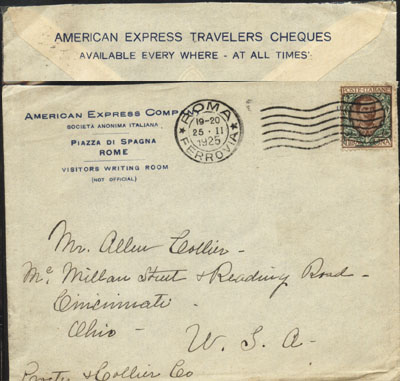 AMERICAN EXPRESS TRAVELERS CHEQUES
AVAILABLE EVERY WHERE - AT ALL TIMES
AMERICAN EXPRESS COMP
SOCIETA ANONIMA ITALIANA
PIAZZA DI SPAGNA
ROME
VISITORS WRITING ROOM
(NOT OFFICIAL)
ROMA
19-20
25·II
1925
FERROVIA
POSTE ITALIANE
Mr. Allen Collier -
Mc Millan Street & Reading Road -
Cincinnati -
Ohio -
U. S. A -
& Collier Co